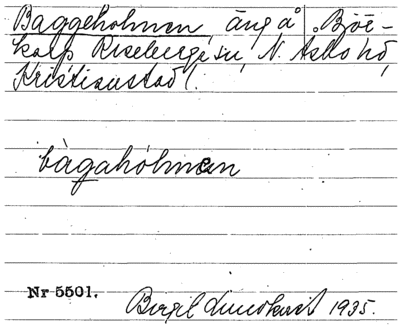 Baggeholmen, äng å Björ-
karp Riseberga sn, N. Åsbo hd,
Kristianstad l.
bàgahólmen
Nr 5501.
Birgit Lundkvist 1935.